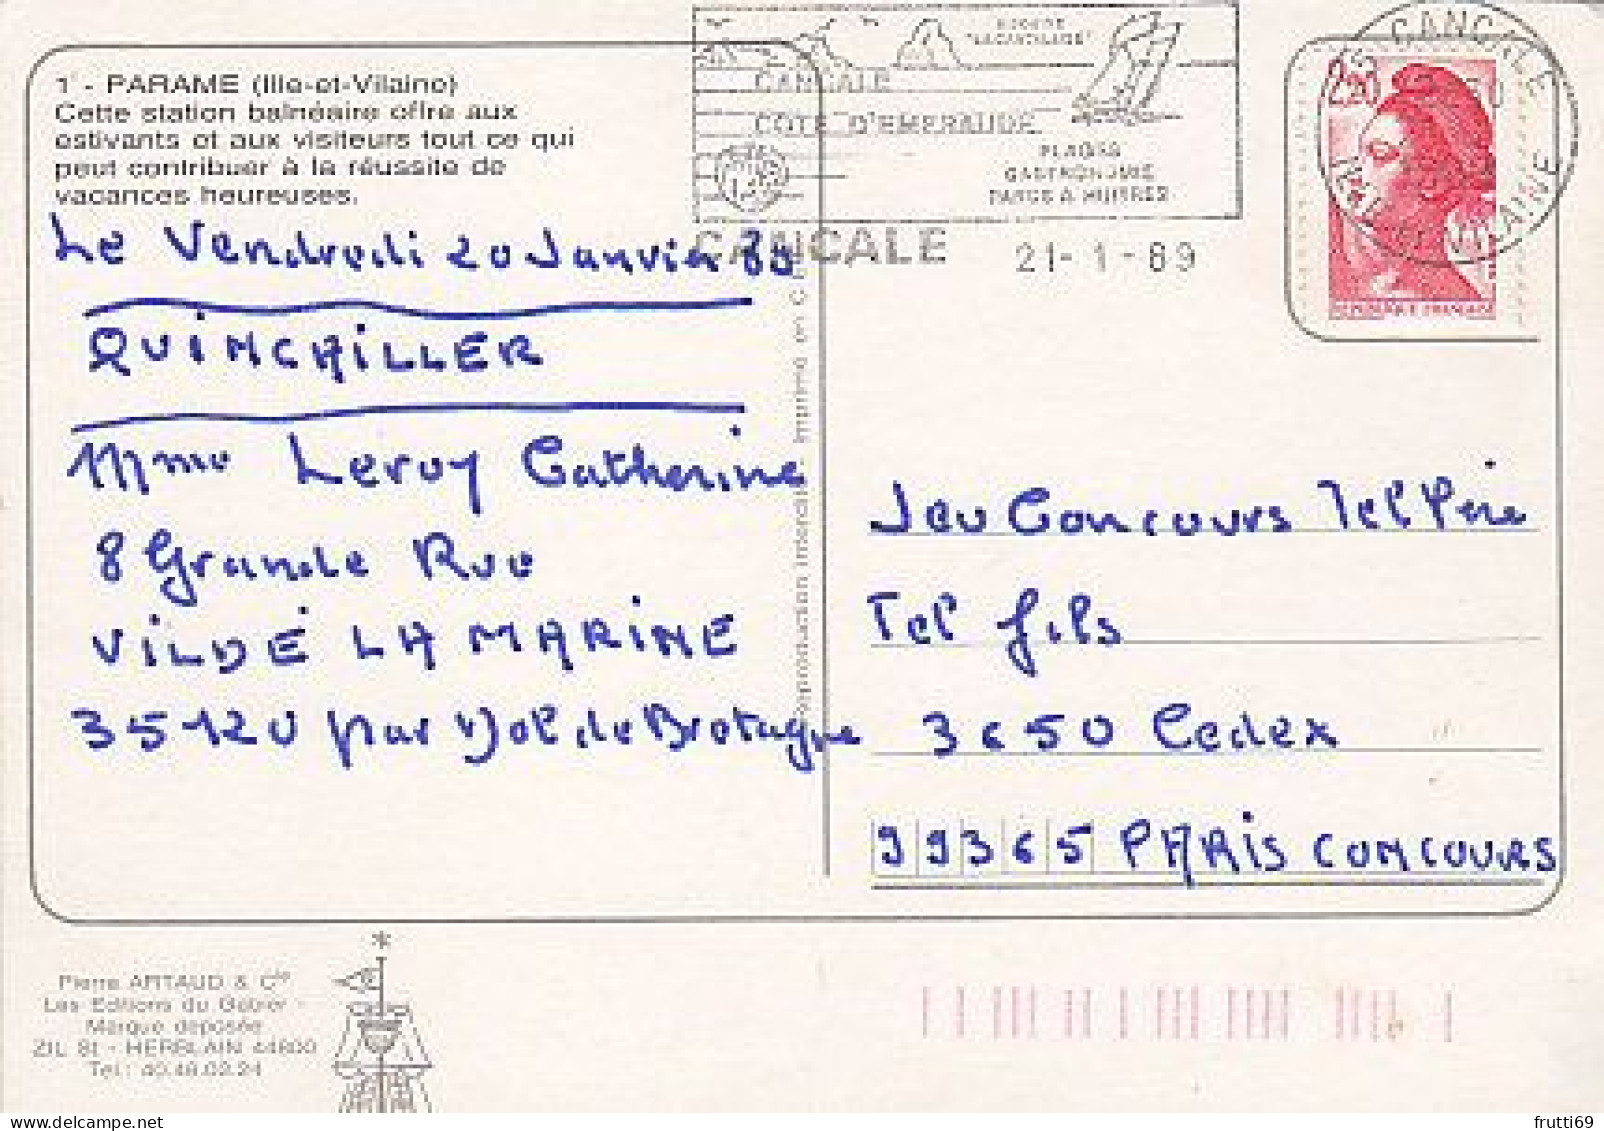 1* - PARAME (Ille-et-Vilaine)
Cette station balnéaire offre aux
estivants et aux visiteurs tout ce qui
peut contribuer à la réussite de
vacances heureuses.
Le Vendredi 20 Janvier 89
QUINCAILLER
Mme Leroy Catherine
8 Grande Rue
VILDÉ LA MARINE
35120 par Dol de Bretagne
Pierre ARTAUD & Cie
Les Editions du Gabier -
Marque déposée
ZIL St - HERBLAIN 44800
Tel : 40.46.02.24
Reproduction interdite Imprimé en
CANCALE
COTE D'EMERAUDE
PLAGES
GASTRONOMIE
PARCS A HUITRES
CANCALE
21-1-89
35 CANCALE
ILLE-ET-VILAINE
2,20
REPUBLIQUE FRANÇAISE
Jeu Concours Tel Père
Tel fils
3650 Cedex
99365 PARIS CONCOURS
frutti69